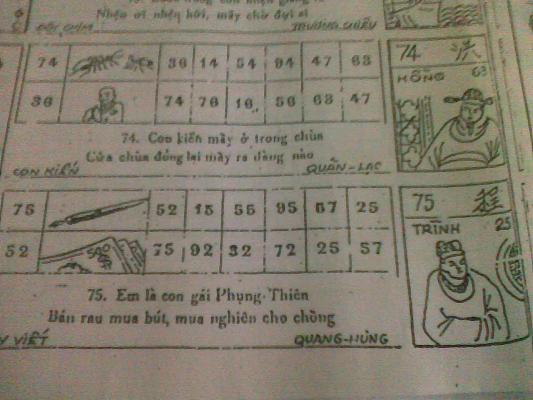 Nhện ơi nhện hỡi, mày chờ đợi ai
TRƯƠNG-CHIÊU
74 36 14 54 94 47 63
36 74 76 16 56 63 47
74. Con kiến mầy ở trong chùa
Cửa chùa đóng lại mầy ra đàng nào
CON KIẾN QUẢN-LẠC
74
HỒNG 63
75 52 15 55 95 57 25
52 75 92 32 72 25 57
75. Em là con gái Phụng-Thiên
Bán rau mua bút, mua nghiên cho chồng
VIẾT QUANG-HÙNG
75 程
TRÌNH 25